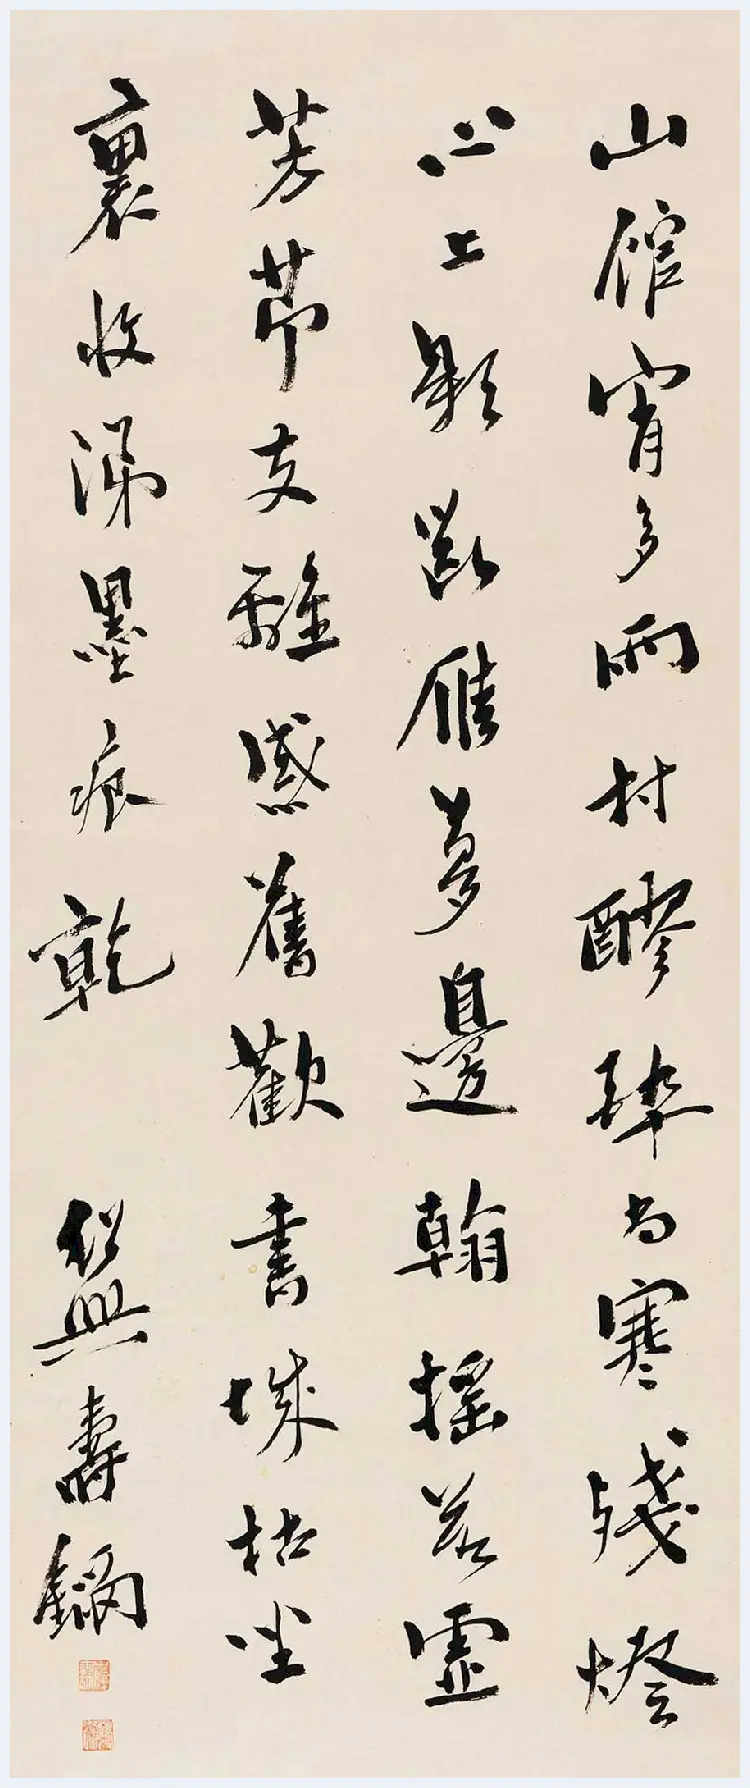 山館宵多雨村醪醉尚寒殘燈
心上影斷雁夢邊翰搖落靈
芳節支離感舊歡書城枯坐
裏收涕墨痕乾 紹興壽鑈